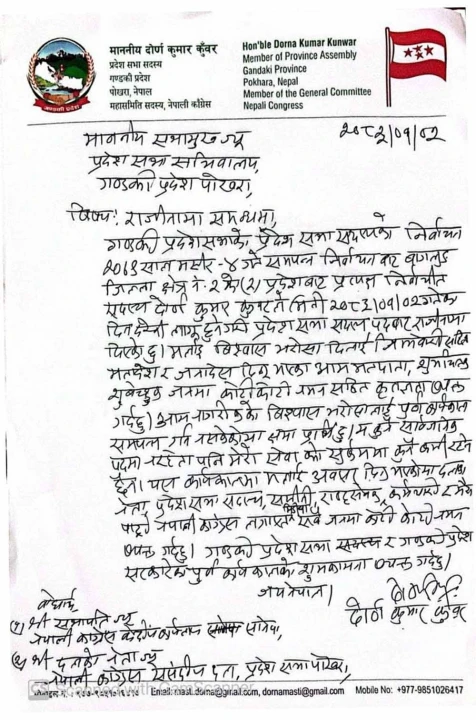 माननीय दोर्ण कुमार कुँवर
प्रदेश सभा सदस्य
गण्डकी प्रदेश
पोखरा, नेपाल
महासमिति सदस्य, नेपाली काँग्रेस
Hon'ble Dorna Kumar Kunwar
Member of Province Assembly
Gandaki Province
Pokhara, Nepal
Member of the General Committee
Nepali Congress
माननीय सभामुख ज्यू
प्रदेश सभा सचिवालय,
गण्डकी प्रदेश पोखरा,
विषय: राजीनामा सम्बन्धमा,
गण्डकी प्रदेशसभाको प्रदेश सभा सदस्यको निर्वाचन
सालमंसिर - ४ गते सम्पन्न निर्वाचन बाट बागलुङ
जिल्ला क्षेत्र नं- २ को (२) प्रदेशबाट प्रत्यक्ष निर्वाचित
सदस्य दोर्ण कुमार कुँवरले मिती
दिन लागू हुनेगरी प्रदेश सभा सदस्य पदबाट राजीनामा
दिएको छु। मलाई विश्वास भरोसा दिलाई
मतदेश र जनादेश दिनु भएका आम मतदाता, शुभचिन्तक
जनमा कोटी कोटी नमन सहित कृतज्ञता व्यक्त
गर्दछु। आम नागरीकको विश्वास भरोसालाई पूर्ण
सम्पन्न गर्न नसकेकोमा क्षमा प्रार्थी छु। म कुनै सार्वजनिक
पदमा नरहेता पनि मेरो सेवा
यस कार्यकालमा मलाई अवसर दिनु भएकोमा
नेता, प्रदेश सभा सदस्य, कर्मचारी र मेरो
पार्टी नेपाली काँग्रेस लगायत सबै जनमा कोटी कोटी नमन
व्यक्त गर्दछु। गण्डकी प्रदेश सभा र गण्डकी प्रदेश
सरकारको पूर्ण कार्यकालको शुभकामना व्यक्त गर्दछु।
जय नेपाल।
दोर्ण कुमार कुँवर
बोधार्थ
श्री सभापति ज्यू
नेपाली काँग्रेस केन्द्रीय कार्यालय
श्री दलको नेता ज्यू
नेपाली काँग्रेस संसदीय दल, प्रदेश सभा पोखरा,
Scanned with CamScanner
Email: masti.dorna@gmail.com, dornamasti@gmail.com Mobile No: +977-9851026417